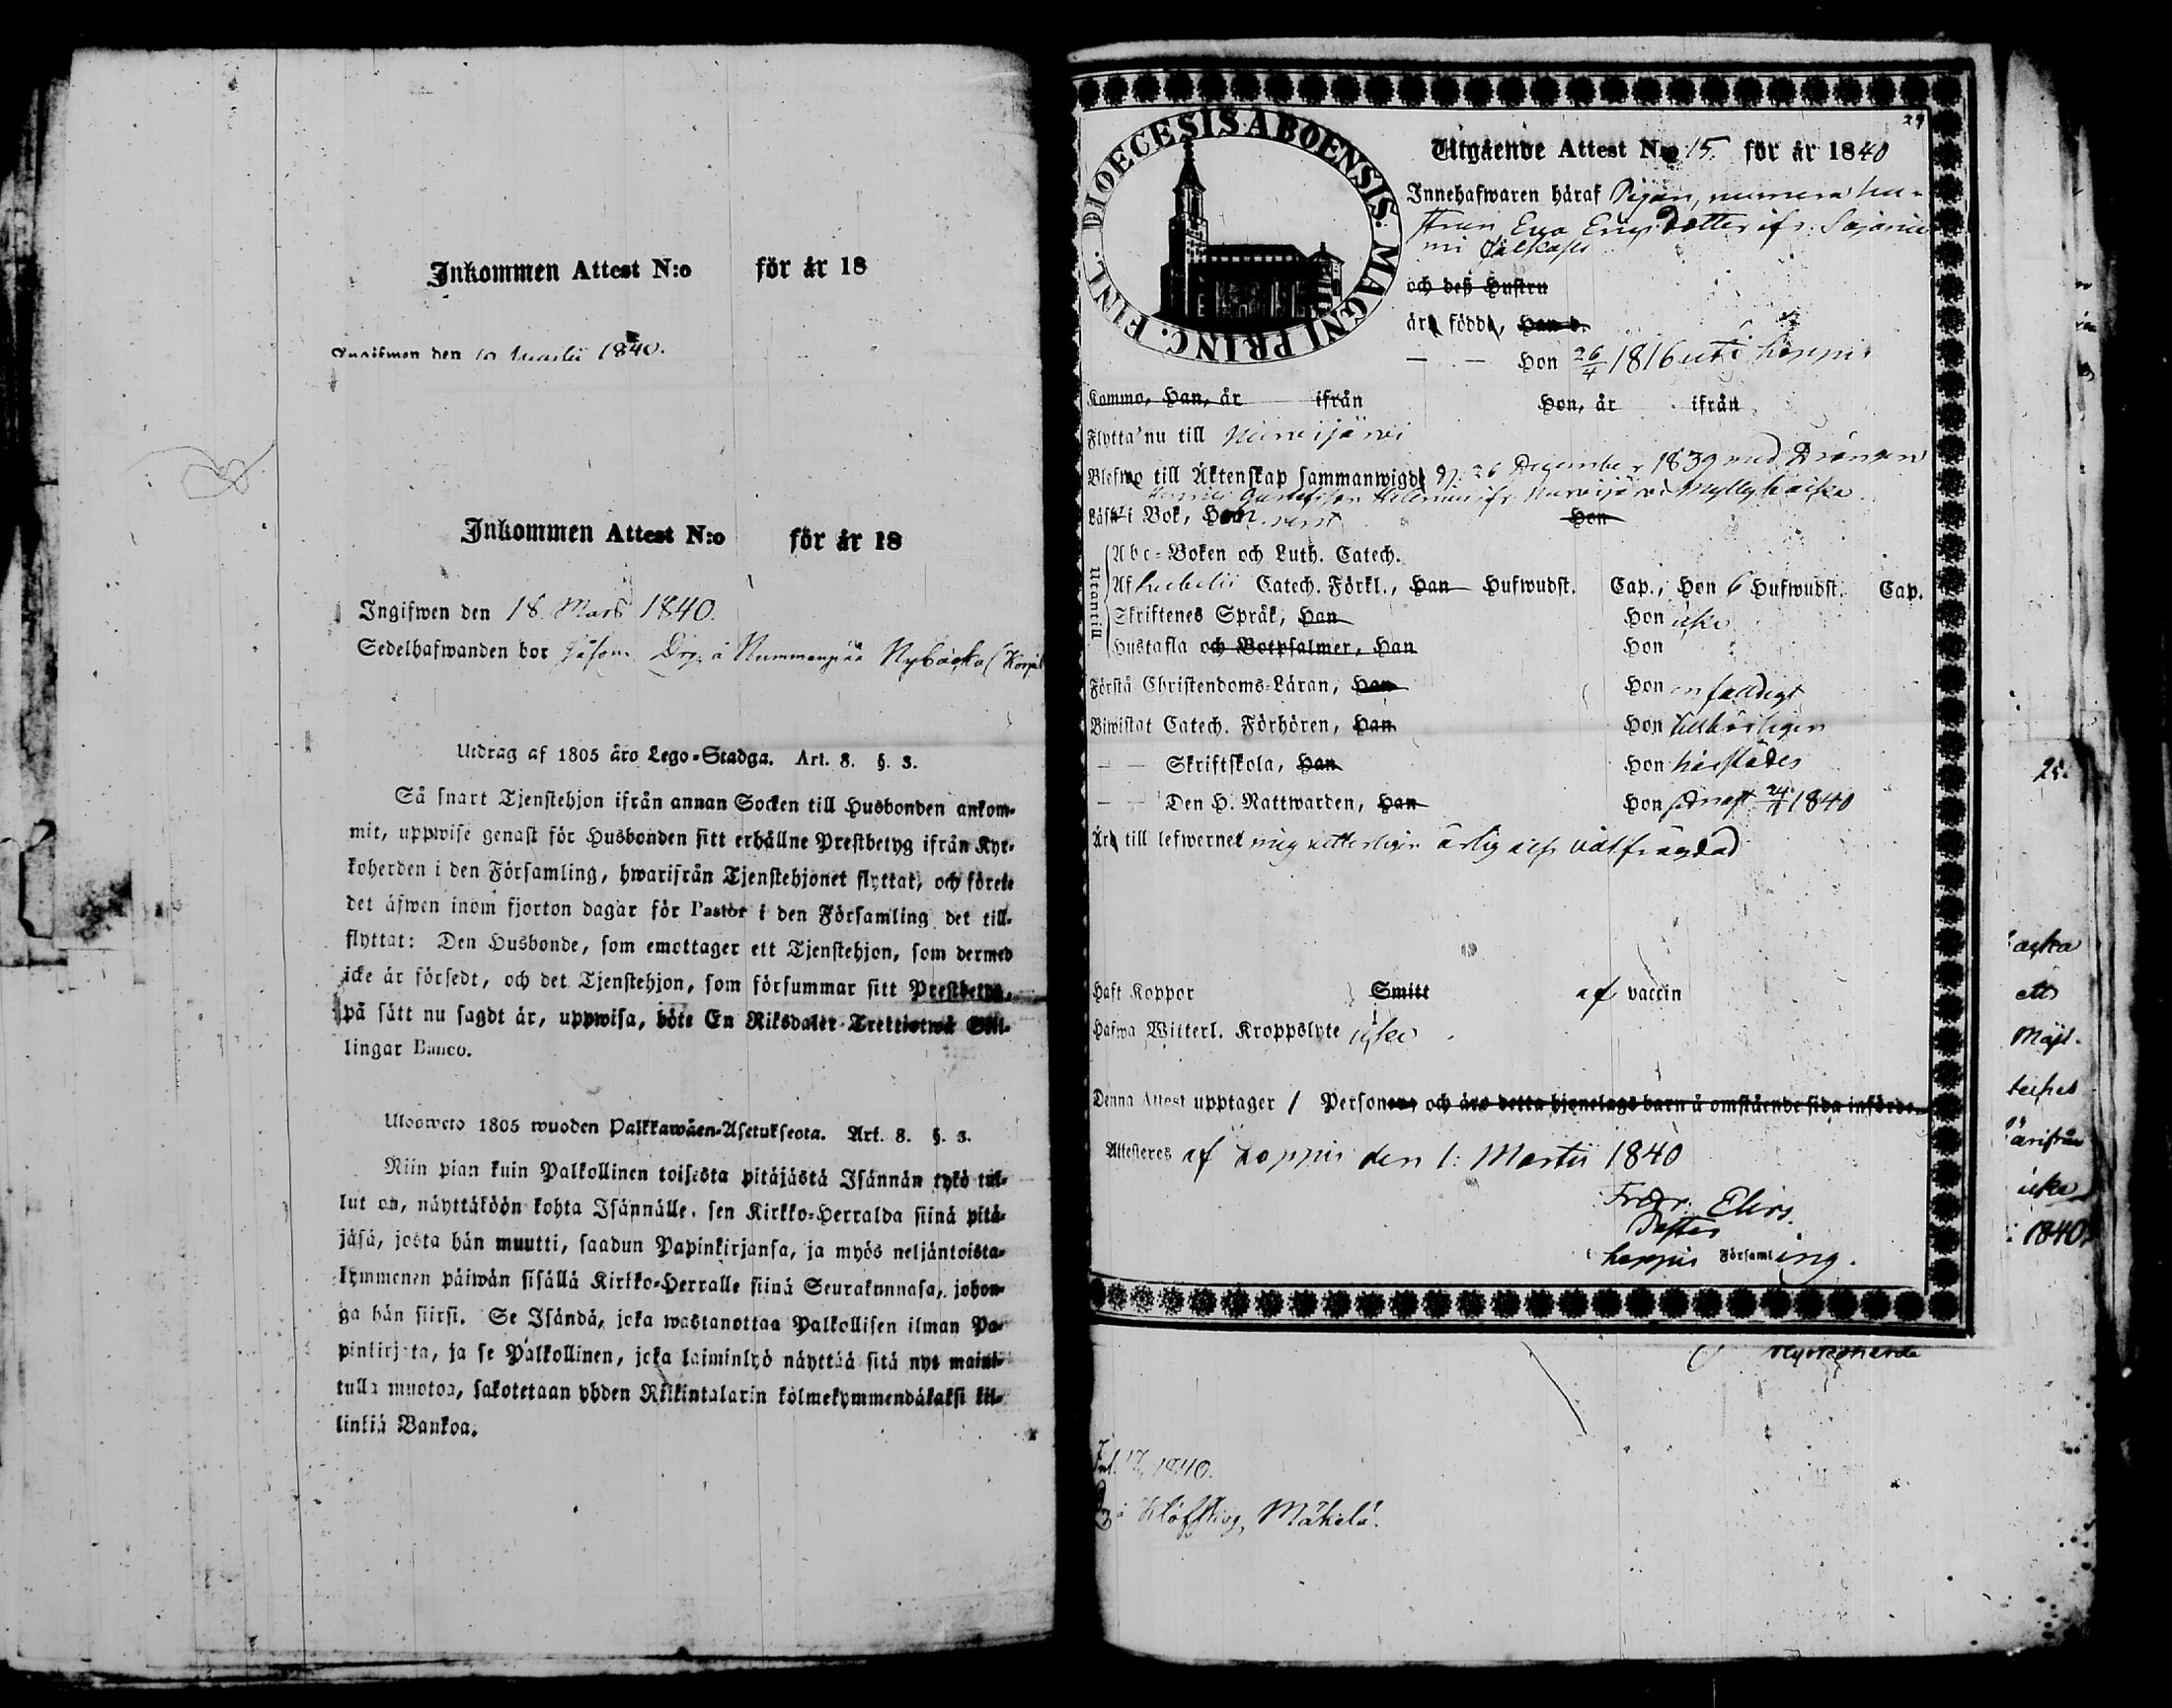 Inkommen Attest N:o för år 18
Ingifwen den 10 Martii 1840.
Inkommen Attest N:o för år 18
Ingifwen den 18 Mars 1840.
Sedelhafwanden bor såsom Drg. å Nummenpää Nybacka
Utdrag af 1805 åro Lego-Stadga. Art. 8. §. 3.
Så snart Tjenstehjon ifrån annan Socken till Husbonden ankom-
mit, uppwise genast för Husbonden sitt erhållne Prestbetyg ifrån Kyr-
koherden i den Församling, hwarifrån Tjenstehjonet flyttat, och förete
det äfwen inom fjorton dagar för Pastor i den Församling det till-
flyttat: Den Husbonde, som emottager ett Tjenstehjon, som dermed
icke är försedt, och det Tjenstehjon, som försummar sitt Prestbetyg,
på sätt nu sagdt är, uppwisa, böte En Riksdaler Trettiotwå Skil-
lingar Banco.
Ulosweto 1805 wuoden Palkkawäen-Asetuksesta. Art. 8. §. 3.
Niin pian kuin Palkollinen toisesta pitäjästä Isännän tykö tul-
lut on, näyttäköön kohta Isännälle, sen Kirkko-Herralda siinä pitä-
jäsä, josta hän muutti, saadun Papinkirjansa, ja myös neljäntoista-
kymmenen päiwän sisällä Kirkko-Herralle siinä Seurakunnasa, johon-
ga hän siirsi. Se Isändä, joka wastanottaa Palkollisen ilman Pa-
pinkirjata, ja se Palkollinen, joka laiminlyö näyttää sitä nyt maini-
tulla muotoa, sakotetaan yhden Riikintalarin kolmekymmendäkaksi kil-
linkiä Bankoa.
29
DIOECESIS ABOENSIS. MAGNI PRINC. FINL.
Utgående Attest N:o 15. för år 1840
Innehafwaren häraf Pigan, numera hu-
strun Eva Ericsdotter ifr. Sajanie
mi
och deß Hustru
äro födde, Han d.
— — Hon 26/4 1816 uti Loppis
Komma, Han, år ifrån Hon, år ifrån
Flytta nu till Nurmijärvi
Blefwo till Äktenskap sammanwigde d. 26 December 1839 med Drängen
Henric Gustafsson ifr. Nurmijärvi
Läst i Bok, Hon Hon
Utantill
Abc-Boken och Luth. Catech.
Af Catech. Förkl., Han Hufwudst. Cap., Hon 6 Hufwudst. Cap.
Skriftenes Språk, Han Hon icke
Hustafla och Botpsalmer, Han Hon
Förstå Christendoms-Läran, Han Hon enfaldigt
Biwistat Catech. Förhören, Han Hon tillbörligen
— — Skriftskola, Han Hon härstädes
— — Den H. Nattwarden, Han Hon senast 1840
Äro till lefwernet mig vetterligen ärlig och välfrägdad
Haft Koppor Smitt af vaccin
Hafwa Witterl. Kroppslyte icke
Denna Attest upptager 1 Personer, och äro detta hjonelags barn å omstående sida införde.
Attesteres af Loppis den 1: Martii 1840
Fredr. Elers.
Pastor
i Loppis Församling.
Kyrkoherde
1840.
å Klöfskog, Mäkelä.
25.
acka
icke
1840.